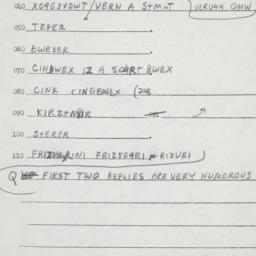 040 XO9G3VOWT / VERN A S+M.T VERVAN QMW
050 TEPER
060 BWEXER
070 CINBWEX IZ A SCHRT BWEX
080 CINK CINGBWEX (208
090
100 S+ERER
110 FRIZKO4RI RIZURI
Q FIRST TWO REPLIES ARE VERY HUMOROUS